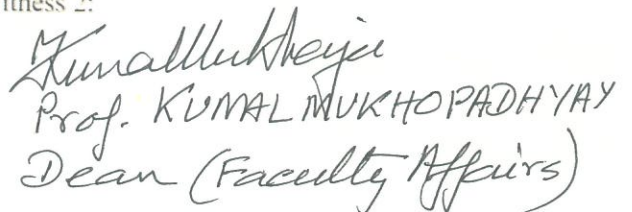 itness 2:
Kunal Mukherjee
Prof. KUNAL MUKHOPADHYAY
Dean (Faculty Affairs)